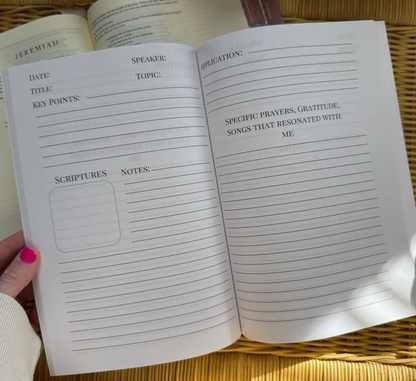 JEREMIAH
DATE:
SPEAKER:
TITLE:
TOPIC:
KEY POINTS:
SCRIPTURES
NOTES:
APPLICATION:
SPECIFIC PRAYERS, GRATITUDE,
SONGS THAT RESONATED WITH
ME